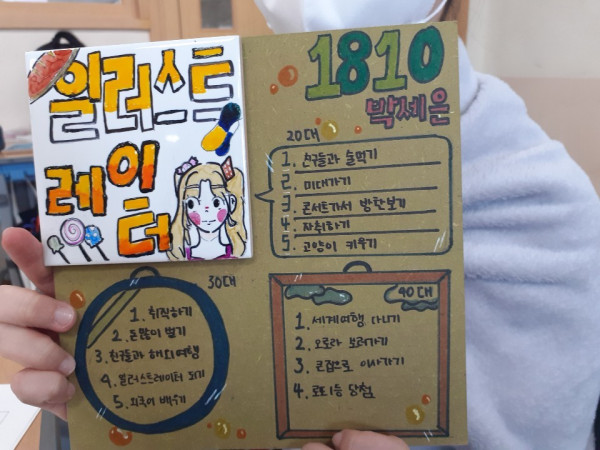 일러스트
레이터
1810
박세은
20대
1. 친구들과 술먹기
2. 미대가기
3. 콘서트가서 방찬보기
4. 자취하기
5. 고양이 키우기
30대
1. 취직하기
2. 돈많이 벌기
3. 친구들과 해외여행
4. 일러스트레이터 되기
5. 외국어 배우기
40대
1. 세계여행 다니기
2. 오로라 보러가기
3. 큰집으로 이사가기
4. 로또1등 당첨